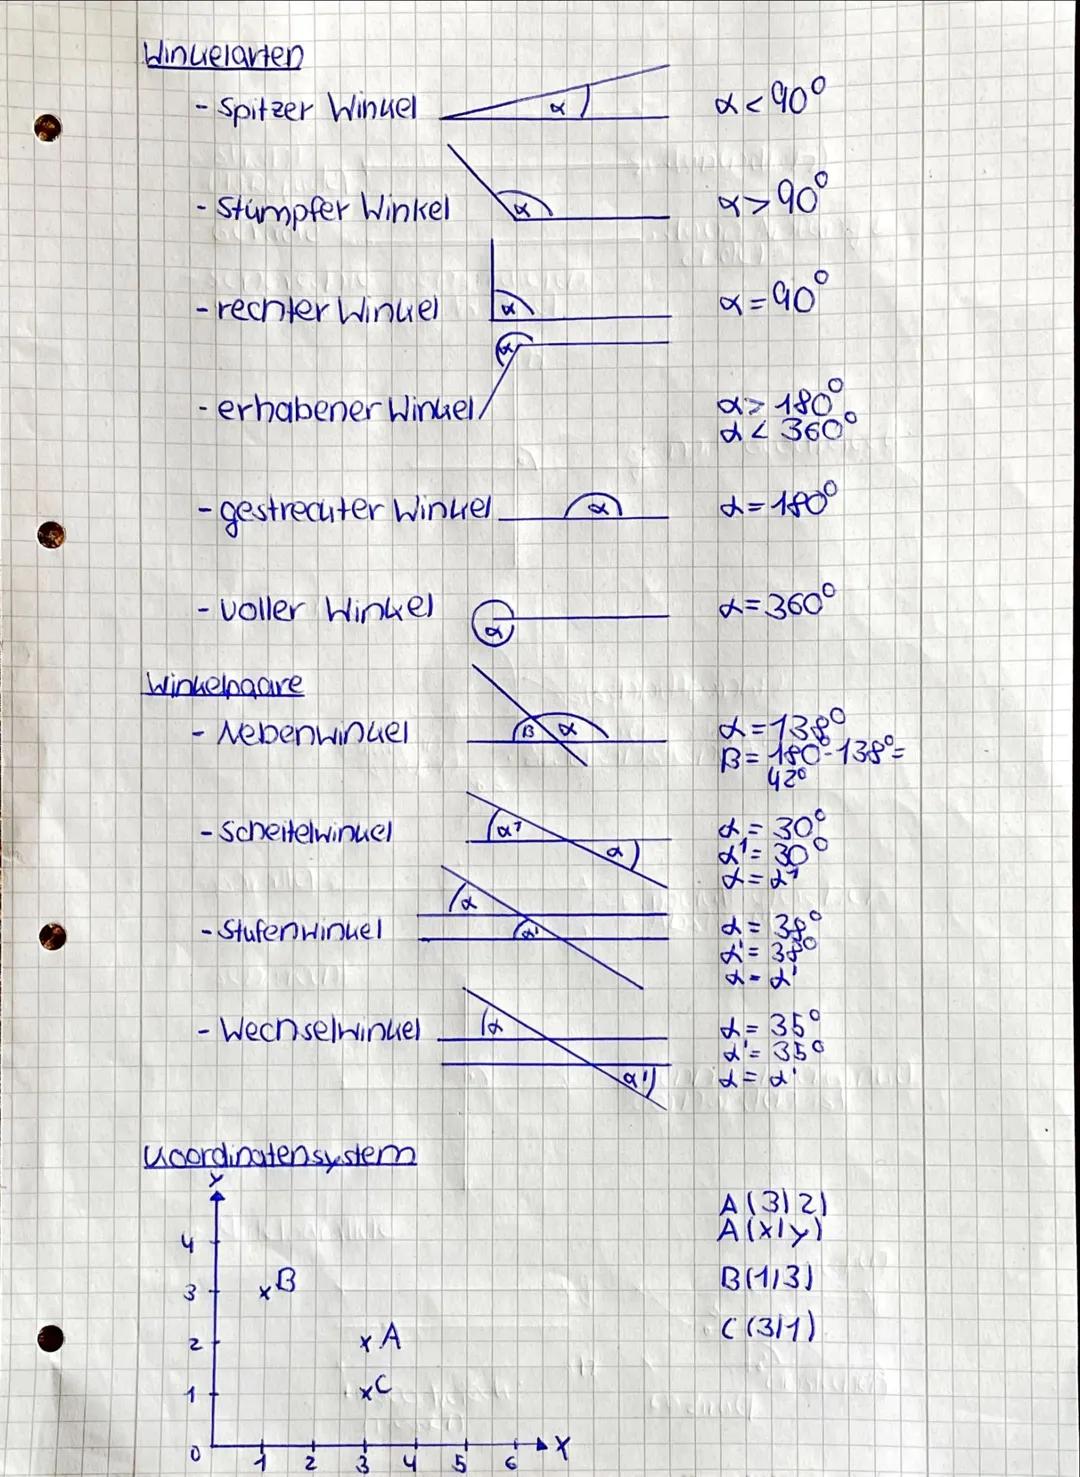 Winkelarten
- Spitzer Winkel α α < 90°
- Stumpfer Winkel α α > 90°
- rechter Winkel α α = 90°
α
- erhabener Winkel α > 180°
α < 360°
- gestreckter Winkel α α = 180°
- voller Winkel α α = 360°
Winkelpaare
- Nebenwinkel β α α = 138°
β = 180° - 138° =
42°
- Scheitelwinkel α' α α = 30°
α' = 30°
α = α'
- Stufenwinkel α α' α = 38°
α' = 38°
α = α'
- Wechselwinkel α α' α = 35°
α' = 35°
α = α'
Koordinatensystem
y
A(3|2)
A(x|y)
4
3 B B(1|3)
2 A C(3|1)
1 C
0 1 2 3 4 5 6 X